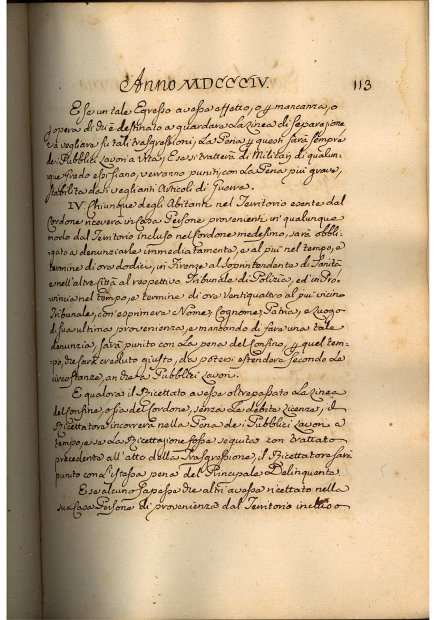 Anno MDCCCIV.
113
E se un tale Egresso avesse effetto, o per mancanza, o
opera di chi è destinato a guardare la Linea di separazione
e a vegliare su tali trasgressioni, La Pena per questi sarà sempre
de' Pubblici Lavori a Vita; E se si tratterà di Militari di qualun-
que grado essi siano, verranno puniti con La Pena più grave,
stabilita dai veglianti Articoli di Guerra.
IV. Chiunque degli Abitanti nel Territorio esente dal
Cordone riceverà in Casa Persone provenienti in qualunque
modo dal Territorio incluso nel Cordone medesimo, sarà obbli-
gato a denunciarle immediatamente, e al più nel tempo, e
termine di ore dodici, in Firenze al Soprintendente di Sanità
e nell'altre Città al respettivo Tribunale di Polizia, ed in Pro-
vincia nel tempo, e termine di ore Ventiquattro al più vicino
Tribunale, con esprimere Nome, Cognome, Patria, e Luogo
di sua ultima provenienza, e mancando di fare una tale
denunzia, sarà punito con La pena del Confino, per quel tem-
po, che sarà creduto giusto, da potersi estendere secondo Le
circostanze, anche a' Pubblici Lavori.
E qualora il Ricettato avesse oltrepassato La Linea
del Confine, o sia del Cordone, senza Le debite Licenze, il
Ricettatore incorrerà nella Pena de' Pubblici Lavori a
tempo, e se La Ricettazione fosse seguita con trattato
precedente all'atto della Trasgressione, il Ricettatore sarà
punito con L'istessa pena del Principale Delinquente.
E se alcuno sapesse che altri avesse ricettato nella
sua Casa Persone di provenienza dal Territorio incluso